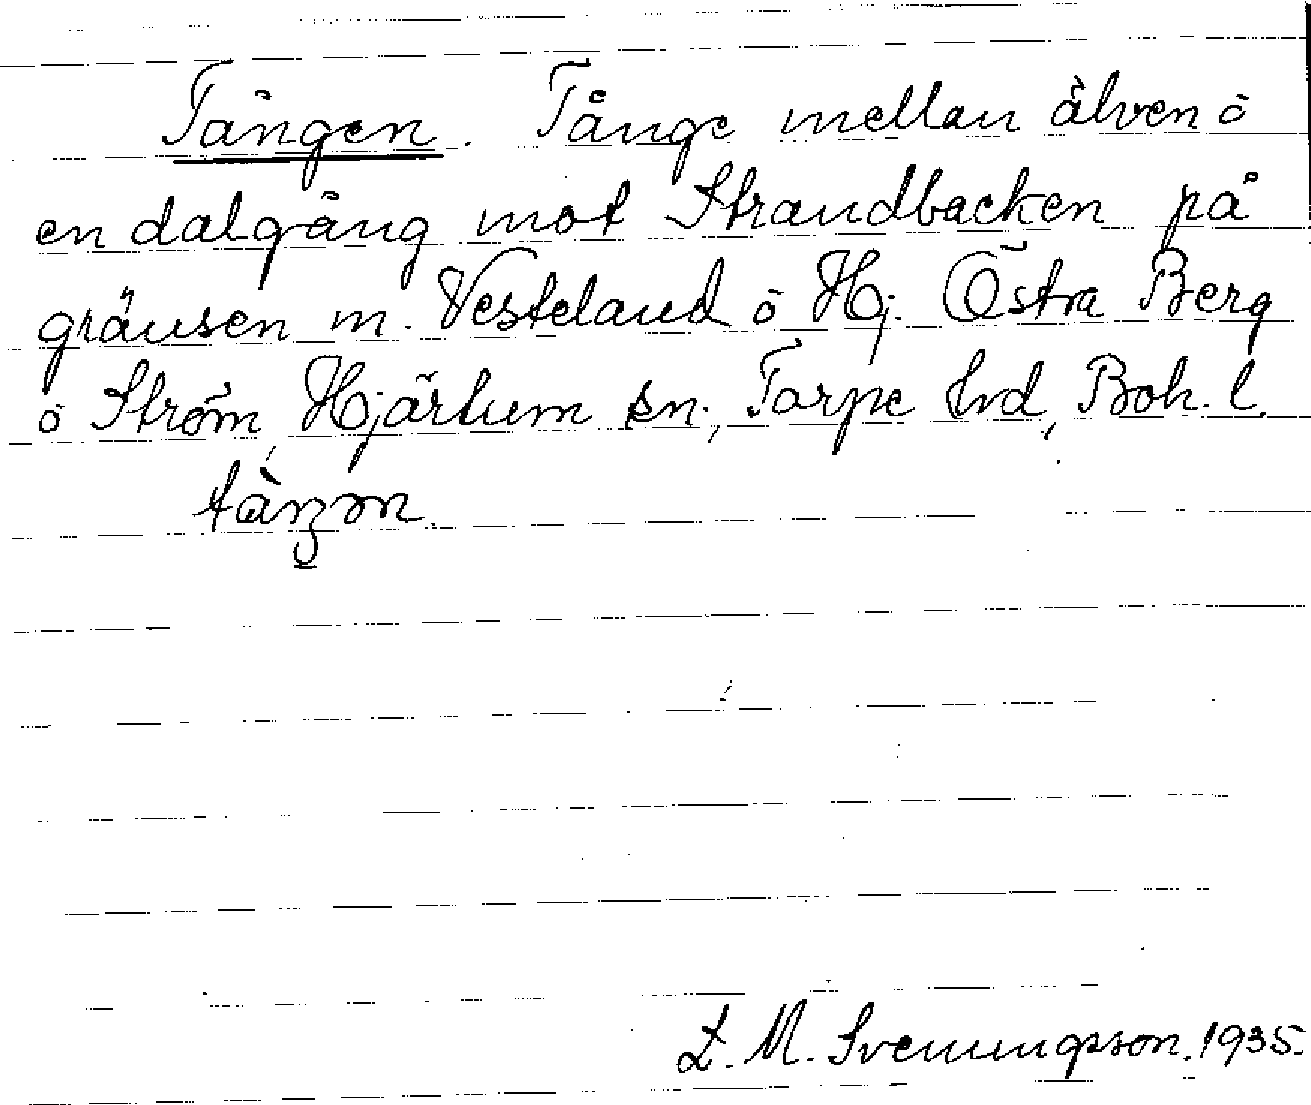 Tången. Tånge mellan älven ō
en dalgång mot Strandbacken på
gränsen m. Vesteland ō Hj. Östra Berg
ō Ström, Hjärtum sn., Torpe hrd, Boh. l.
tàŋən.
L. M. Svenungsson. 1935.